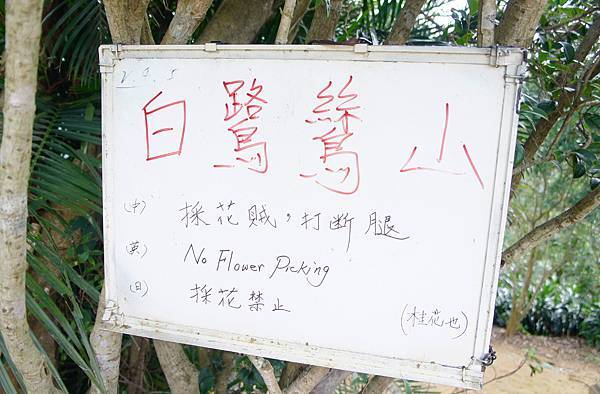 白鷺鷥山
(中) 採花賊，打断腿
(英) No Flower Picking
(日) 採花禁止
(桂花也)